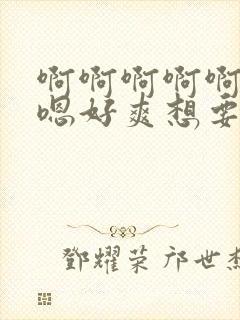 啊啊啊啊啊
嗯好爽想要
鄧耀荣 邝世杰